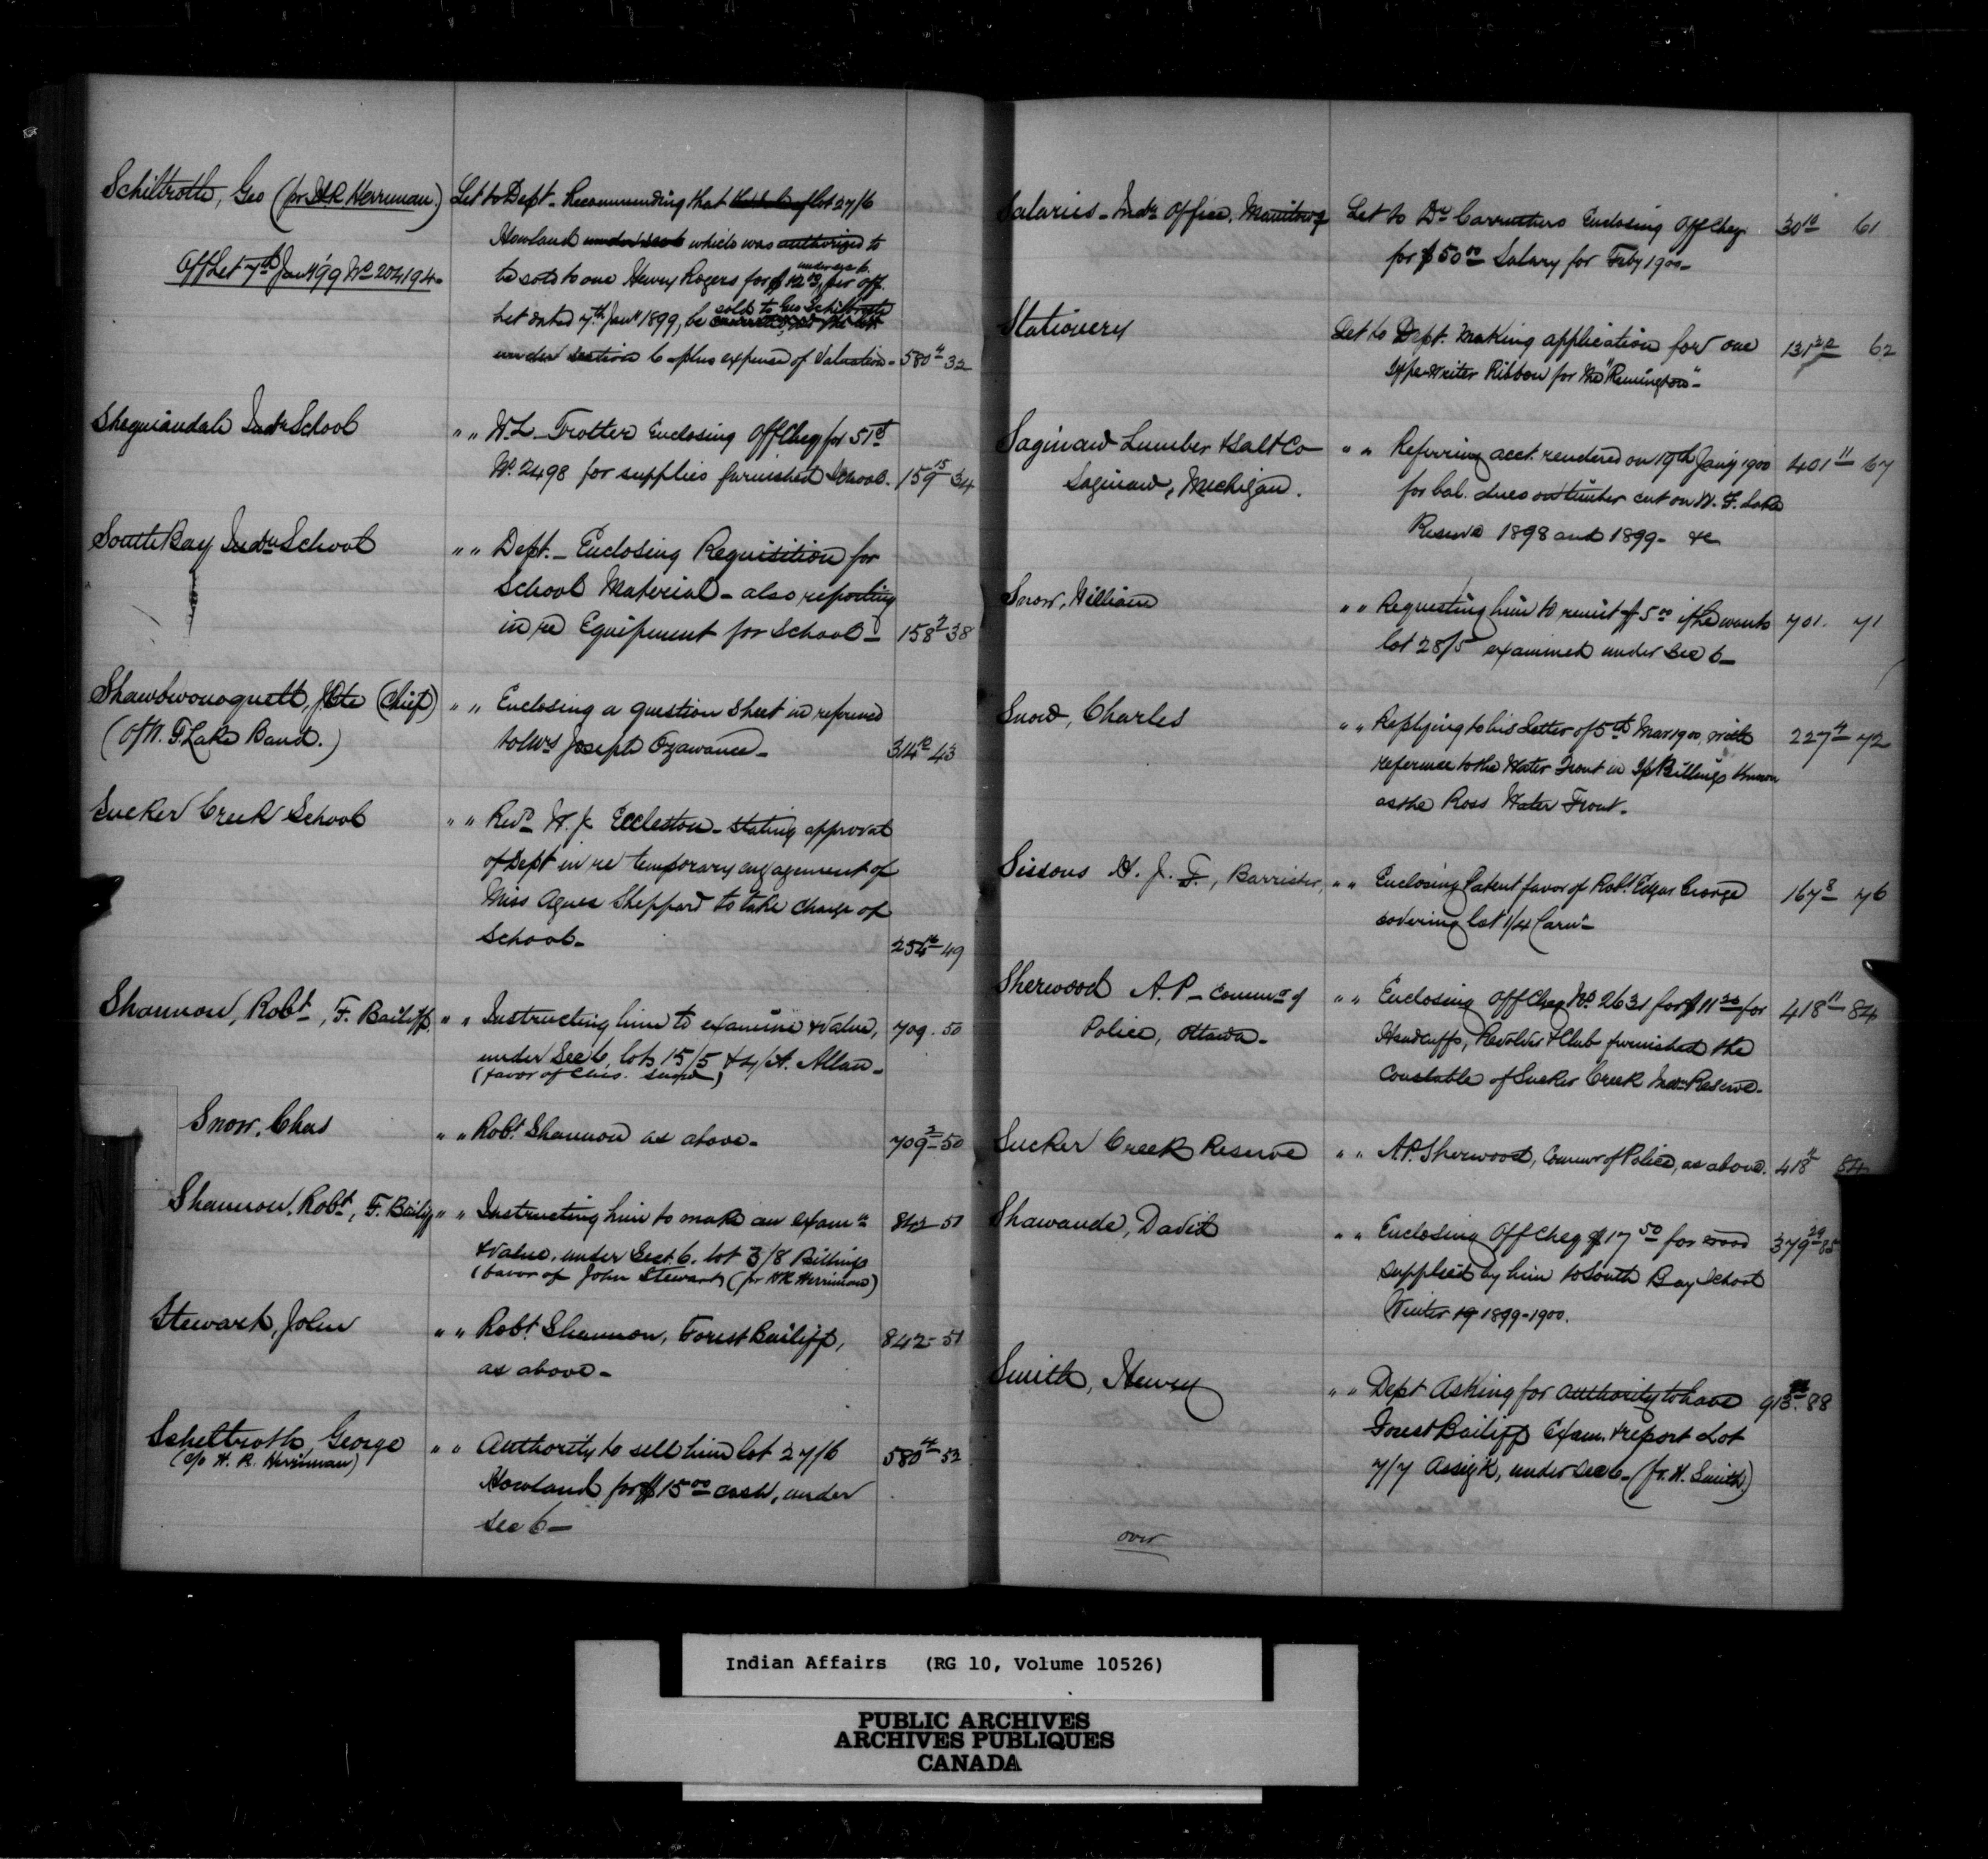 Schiltroth, Geo (pr H.R. Herriman.) Let to Dept - Recommending that lot 27/6
Howland which was authorized to
Off Let 7th Jany '99 No 204194 - be sold to one Henry Rogers for $12.00, under sec 6. per off.
Let dated 7th Jany 1899, be sold to Geo Schiltroth
under section 6 - plus expense of Valuation - 580 4 32
Sheguiandah Indn School " " W.L. Trotter Enclosing Off Cheq for 51 cts
No 2498 for supplies furnished School. 159 15 34
South Bay Indn School " " Dept. - Enclosing Requisition for
School Material - also reporting
in re Equipment for School - 158 2 38
Shawbwonoquett, J. Ote (Chief) " " Enclosing a question sheet in reference
(of W. F. Lake Band.) to Mrs Joseph Ozawance - 314 12 43
Sucker Creek School " " Revd W. J. Eccleston - stating approval
of Dept in re temporary engagement of
Miss Agnes Sheppard to take charge of
School - 254 16 49
Shannon, Robt, F. Bailiff. " " Instructing him to examine & value, 709. 50
under Sec 6, lots 15/5 & 4/A. Allan -
(favor of Chas. Snow)
Snow, Chas " " Robt Shannon as above - 709 2 50
Shannon, Robt, F. Bailiff " " Instructing him to make an exam n 842 - 51
& Value. under Sect. 6. lot 3/8 Billings
(favor of John Stewart) (pr H R Herriman)
Stewart, John " " Robt Shannon, Forest Bailiff, 842 - 51
as above -
Scheltroth, George " " Authority to sell him lot 27/6 580 4 52
(c/o H. R. Herriman)
Howland for $15.00 cash, under
sec 6 -
Salaries - Indn Office, Manitowg Let to Dr Carruthers Enclosing Off Cheq. 30 10 61
for $50.00 Salary for Feby 1900 -
Stationery Let to Dept. Making application for one 131 22 62
type-Writer Ribbon for the "Remington" -
Saginaw Lumber & Salt Co " " Referring acct. rendered on 19th Jany 1900 401 11 67
Saginaw, Michigan. for bal. dues on timber cut on W. F. Lake
Reserve 1898 and 1899 - &c
Snow, William " " Requesting him to remit $5.00 if he wants 701. 71
lot 28/5 examined under Sec 6 -
Snow, Charles " " Replying to his Letter of 5th Mar 1900, with 227 4 72
reference to the Water Front in Tp Billings known
as the Ross Water Front -
Sissons H. J. F., Barrister, " " Enclosing Patent favor of Robt Edgar George 167 8 76
covering lot 1/4 Carn n -
Sherwood A.P. - Commr of " " Enclosing Off Cheq No 2631 for $11.20 for 418 11 84
Police, Ottawa - Handcuffs, Revolver & Club furnished the
Constable of Sucker Creek Indn Reserve -
Sucker Creek Reserve " " A.P. Sherwood, Commr of Police, as above. 418 11 84
Shawande, David " " Enclosing Off Cheq $17.50 for wood 379 29 85
supplied by him to South Bay School
Winter 19 1899-1900.
Smith, Henry " " Dept Asking for authority to have 913. 88
Forest Bailiff Exam. & report Lot
7/7 Assig'k, under sec 6 - (fr. H. Smith)
over
Indian Affairs (RG 10, Volume 10526)
PUBLIC ARCHIVES
ARCHIVES PUBLIQUES
CANADA